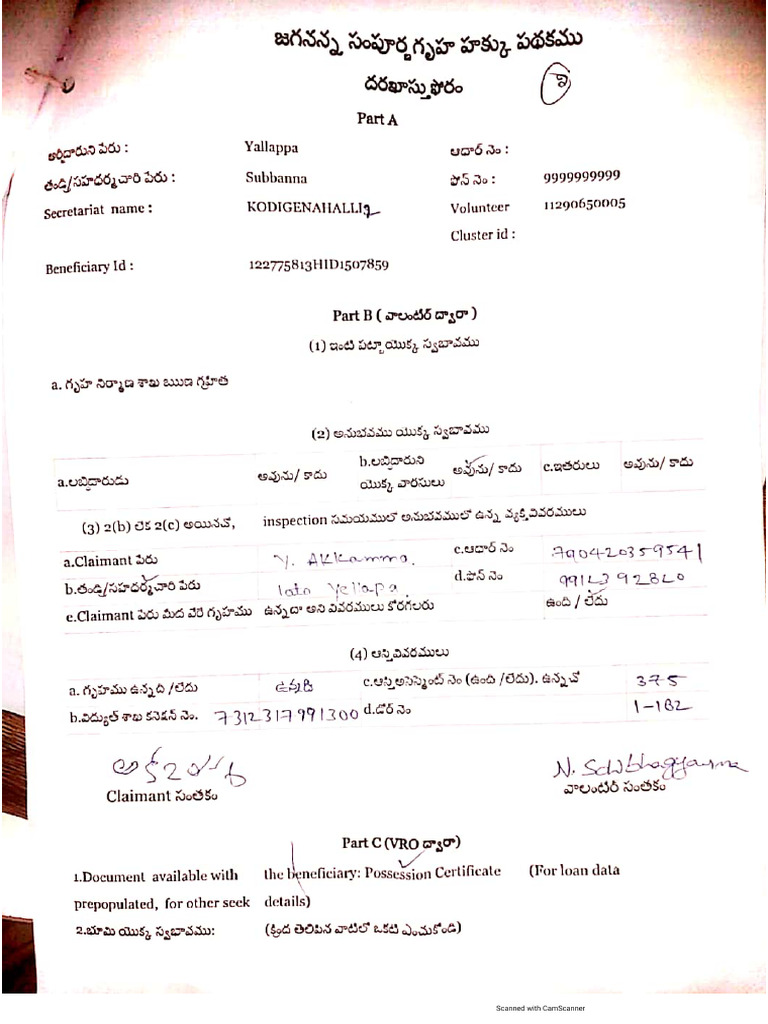 జగనన్న సంపూర్ణ గృహ హక్కు పథకము
దరఖాస్తు ఫోరం
Part A
అర్జీదారుని పేరు : Yallappa ఆధార్ నెం :
తండ్రి/సహధర్మచారి పేరు : Subbanna ఫోన్ నెం : 9999999999
Secretariat name : KODIGENAHALLI2 Volunteer 11290650005
Cluster id :
Beneficiary Id : 122775813HID1507859
Part B ( వాలంటీర్ ద్వారా )
(1) ఇంటి పట్టా యొక్క స్వభావము
a. గృహ నిర్మాణ శాఖ ఋణ గ్రహీత
(2) అనుభవము యొక్క స్వభావము
a.లబ్ధిదారుడు అవును/ కాదు b.లబ్ధిదారుని యొక్క వారసులు అవును/ కాదు c.ఇతరులు అవును/ కాదు
(3) 2(b) లెక 2(c) అయినచో, inspection సమయములో అనుభవములో ఉన్న వ్యక్తి వివరములు
a.Claimant పేరు Y. AKKamma. c.ఆధార్ నెం 790420359541
b.తండ్రి/సహధర్మచారి పేరు late Yellapa. d.ఫోన్ నెం 9912392820
e.Claimant పేరు మీద వేరే గృహము ఉన్నదా అని వివరములు కోరగలరు ఉంది / లేదు
(4) ఆస్తి వివరములు
a. గృహము ఉన్నది /లేదు ఉన్నది c.ఆస్తి అసెస్మెంట్ నెం (ఉంది /లేదు). ఉన్నచో 375
b.విద్యుత్ శాఖ కనెక్షన్ నెం. 7312317991300 d.డోర్ నెం 1-182
Claimant సంతకం వాలంటీర్ సంతకం
Part C (VRO ద్వారా)
1.Document available with the beneficiary: Possession Certificate (For loan data
prepopulated, for other seek details)
2.భూమి యొక్క స్వభావము: (క్రింద తెలిపిన వాటిలో ఒకటి ఎంచుకోండి)
Scanned with CamScanner